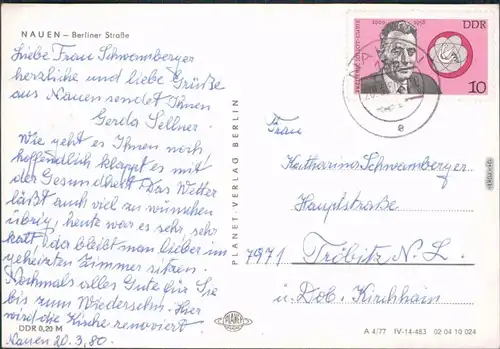 NAUEN – Berliner Straße
Liebe Frau Schwamberger
herzliche und liebe Grüße
aus Nauen sendet Ihnen
Gerda Sellner.
Wie geht es Ihnen noch
hoffendlich klappt es mit
der Gesundheit. Das Wetter
läßt auch viel zu wünschen
übrig, heute war es sehr, sehr
kalt, da bleibt man lieber im
geheizten Zimmer sitzen.
Nochmals alles Gute für Sie
bis zum Wiedersehn. Hier
wird die Kirche renoviert.
DDR 0,20 M
Nauen 20.3.80.
PLANET-VERLAG BERLIN
PLANET
1900 1958
DDR
FRÉDÉRIC JOLIOT-CURIE
10
NAUEN
e
Frau
Katharina Schwamberger
Hauptstraße
7971 Tröbitz N. L.
ü. Dob. Kirchhain
A 4/77 IV-14-483 02 04 10 024